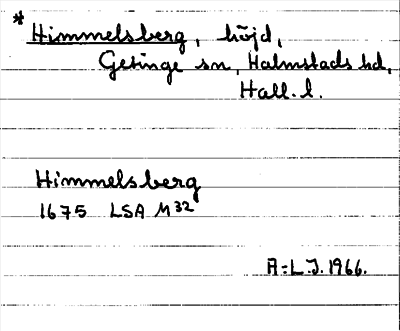 * Himmelsberg, höjd,
Getinge sn, Halmstads hd,
Hall. l.
Himmelsberg
1675 LSA M 32
A-L.J. 1966.